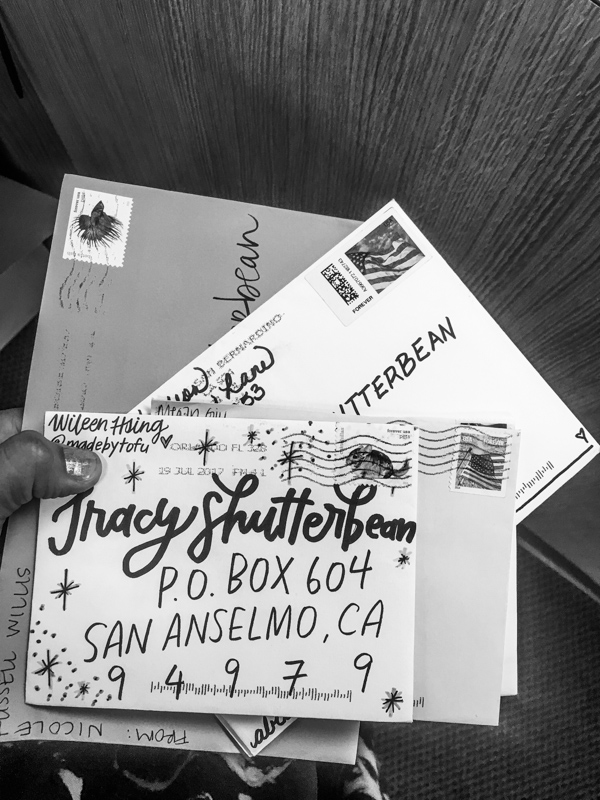 FOREVER
SAN BERNARDINO
Lane
53
UTTERBEAN
Wileen Hsing
@madebytofu
ORLANDO FL 328
19 JUL 2017 PM 4 L
Tracy Shutterbean
P.O. BOX 604
SAN ANSELMO, CA
9 4 9 7 9
FROM: NICOLE
WILLIS